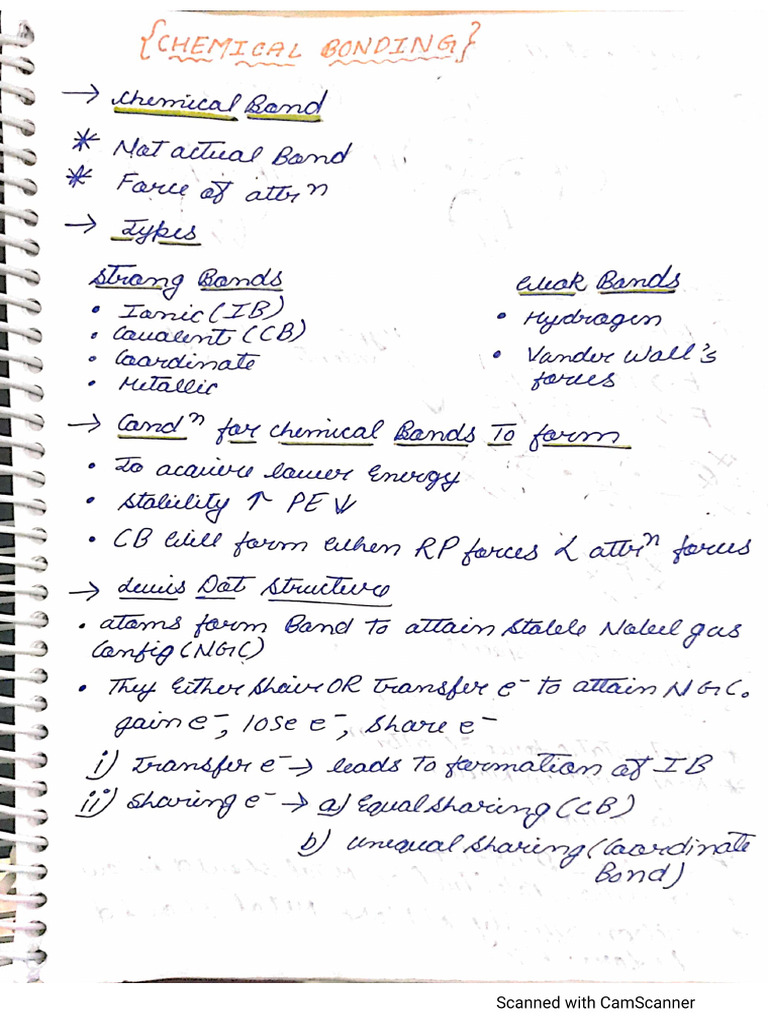 {CHEMICAL BONDING}
→ Chemical Bond
* Not actual Bond
* Force of attrⁿ
→ Types
Strong Bonds
• Ionic (IB)
• Covalent (CB)
• Coordinate
• Metallic
Weak Bonds
• Hydrogen
• Vander Wall's
forces
→ Condⁿ for chemical Bonds To form
• To acquire lower Energy
• Stability ↑ PE ↓
• CB Will form When RP forces < attrⁿ forces
→ Lewis Dot Structure
• atoms form Bond To attain Stable Nobel gas
Config (NGC)
• They Either Share OR Transfer e⁻ to attain NGC.
gain e⁻, lose e⁻, share e⁻
i) Transfer e⁻ → leads To formation of IB
ii) Sharing e⁻ → a) Equal sharing (CB)
b) unequal sharing (Coordinate
Bond)
Scanned with CamScanner